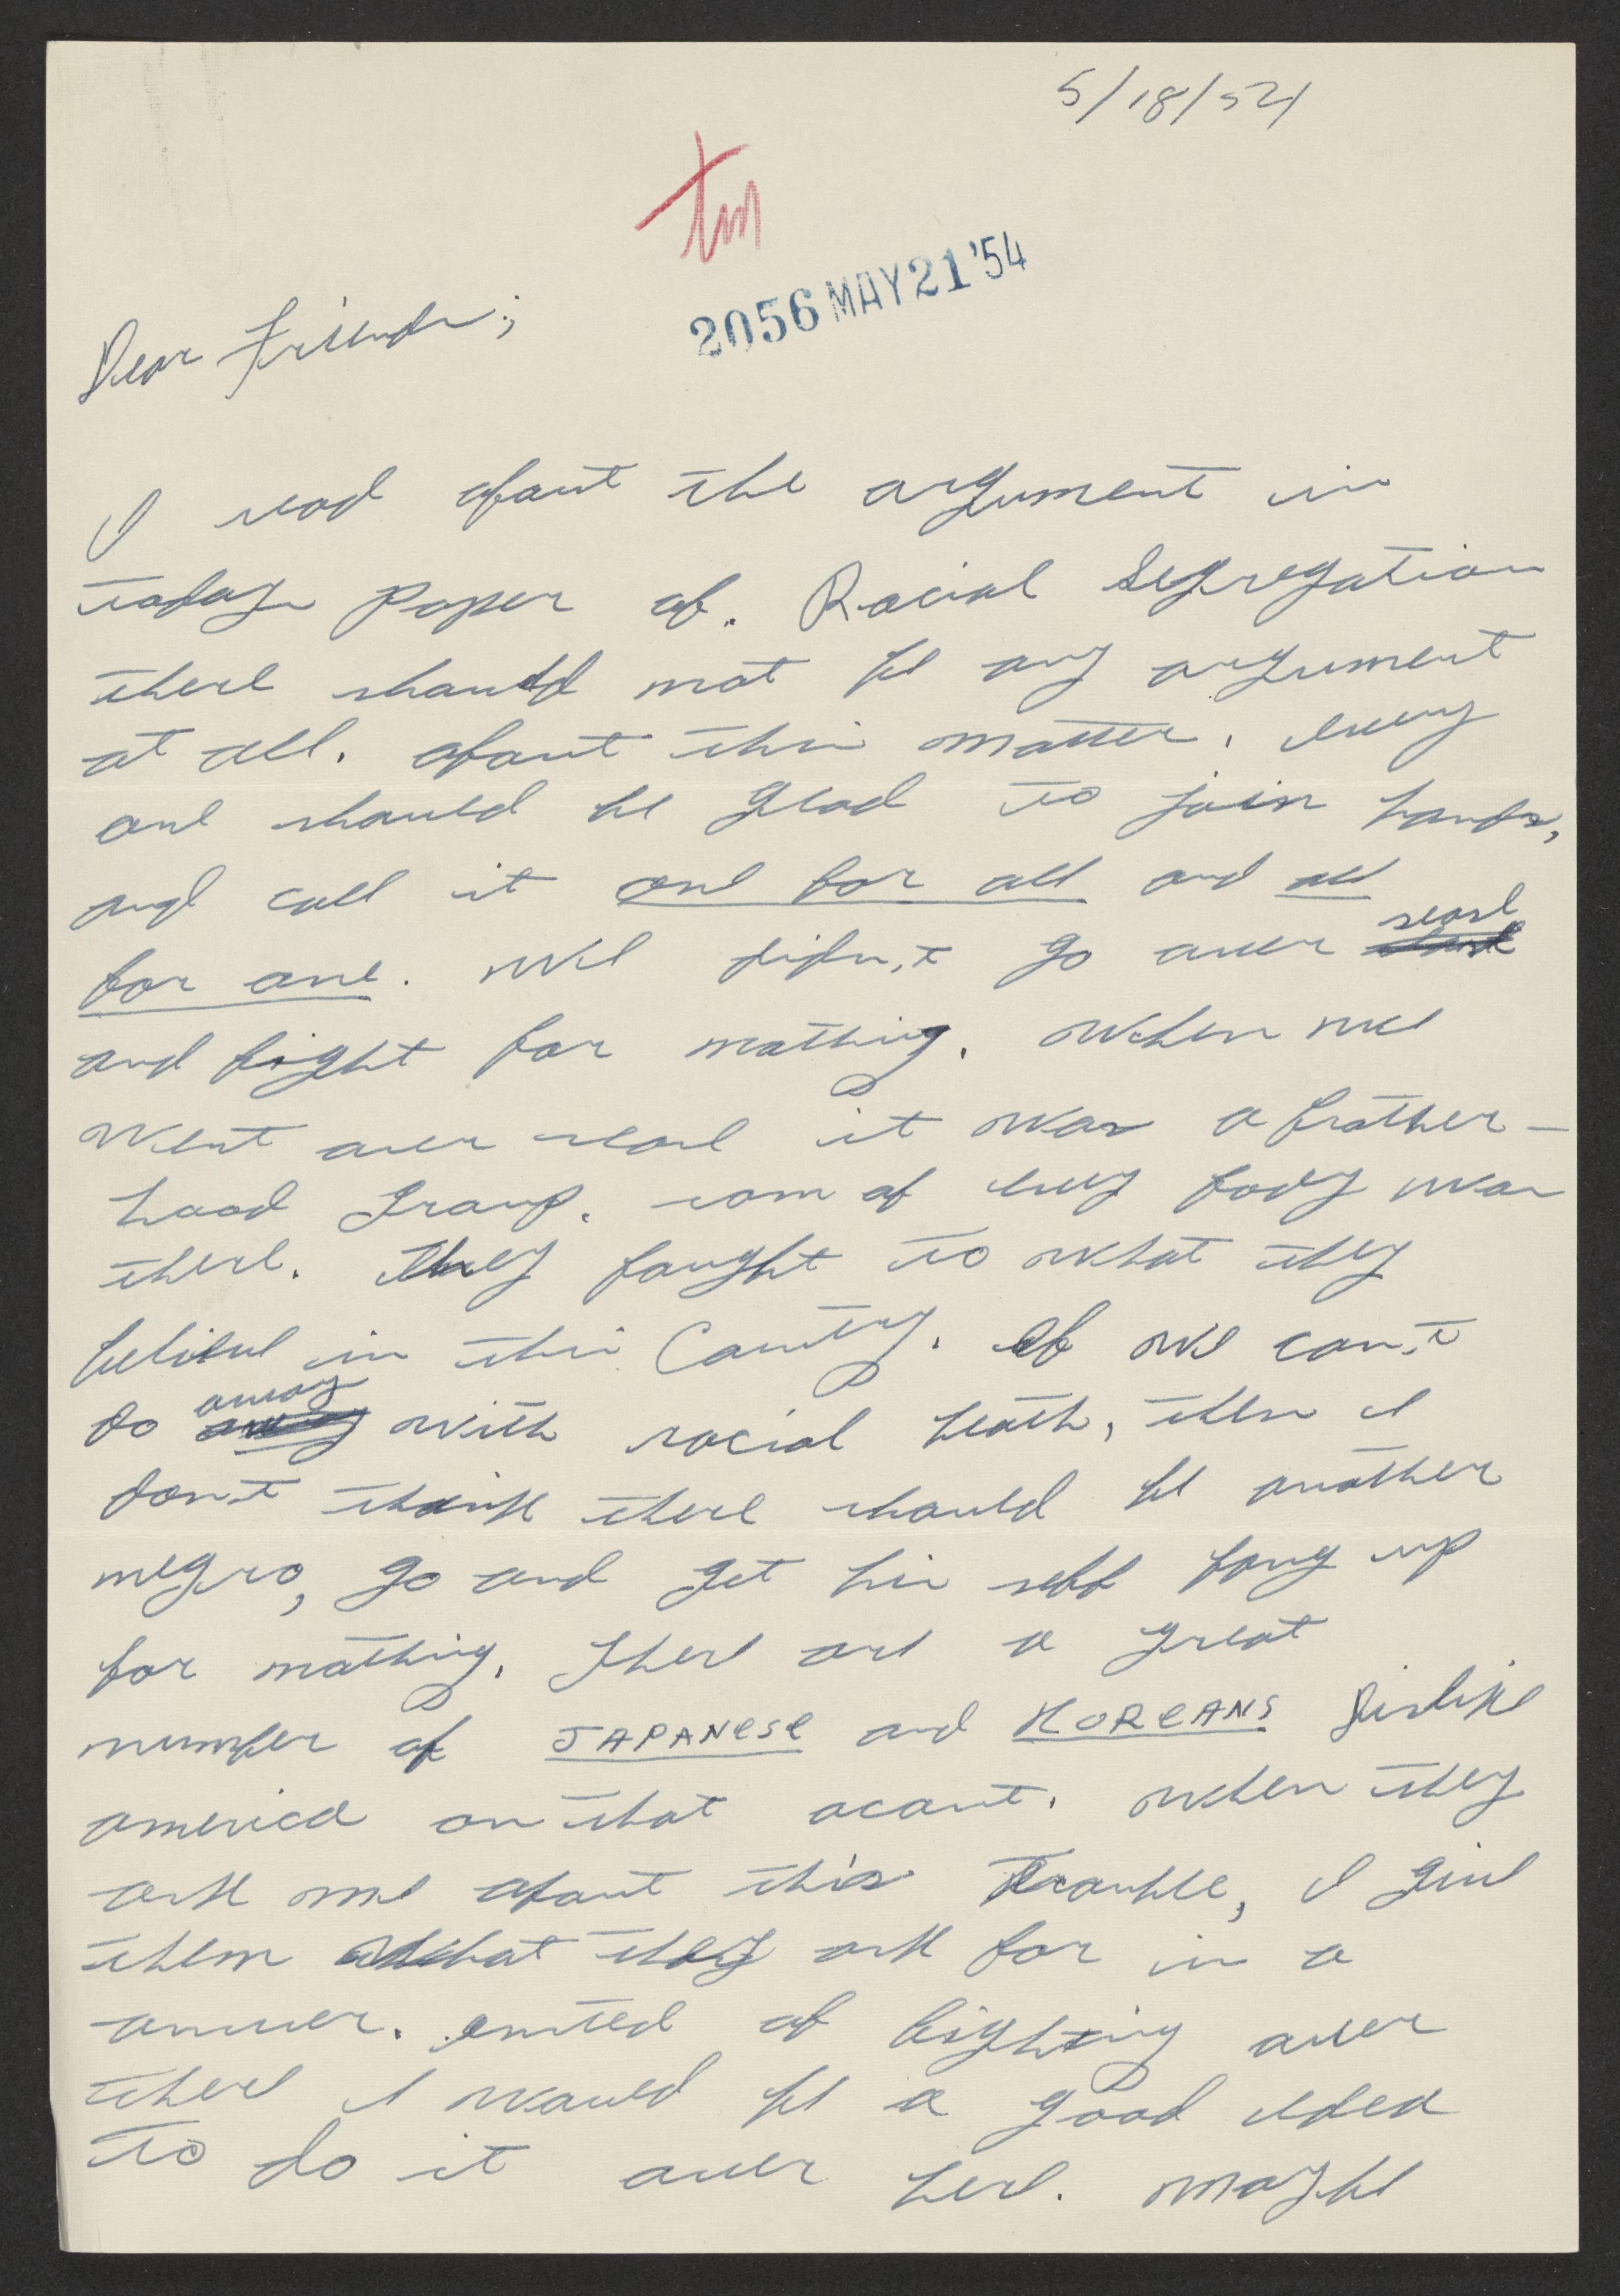 5/18/54
tm
2056 MAY 21 '54
Dear Friends;
I read about the argument in
today Paper of. Racial Segregation
there should not be any argument
at all. about this matter. every
one should be glad to join hands,
and call it one for all and all
for one. We didn,t go over seas
and fight for nothing. When we
went over seas it was a brother-
hood group. som of every body was
there. They fought to what they
believe in this Country. If we can,t
do away with racial heath, then I
don,t think there should be another
negro, go and get his self bang up
for nothing. There are a great
number of JAPANESE and KOREANS dislike
america on that acount. When they
ask me about this trouble, I give
them what they ask for in a
answer. ensted of fighting over
there I would be a good idea
to do it over here. maybe